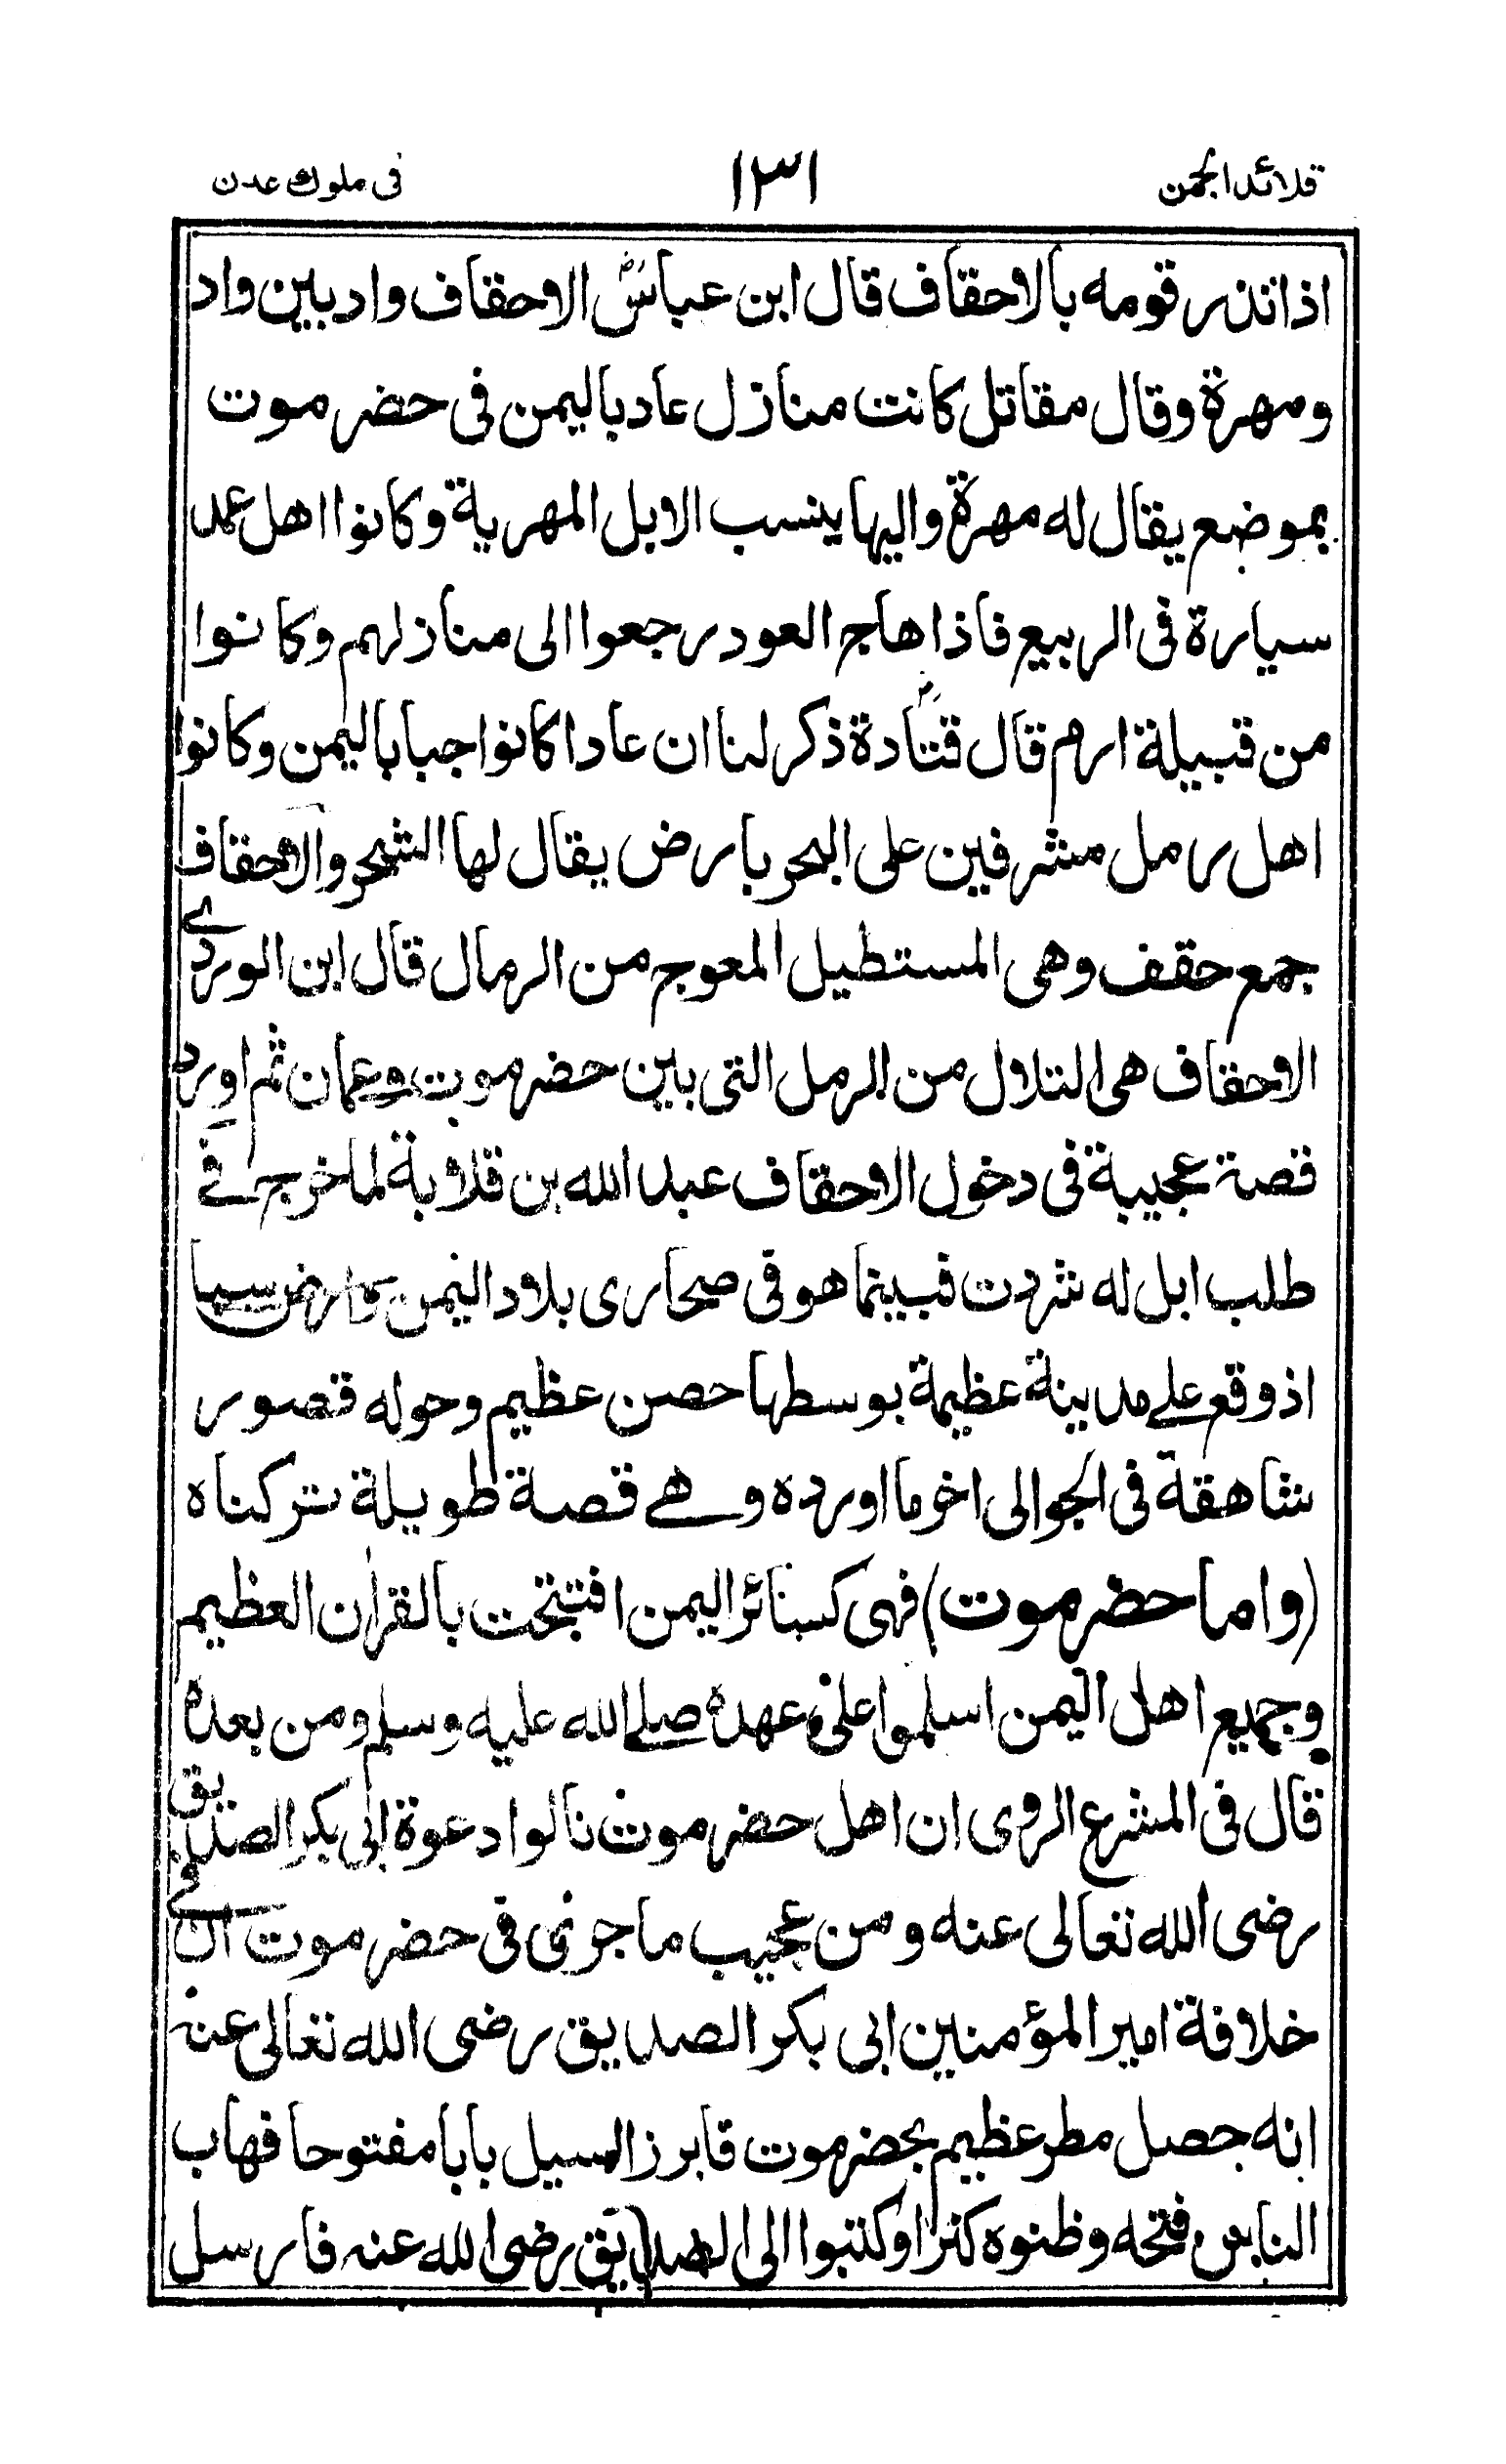 قلائد الجمن ١٣١ فى ملوك عدن
اذا نذر قومه بالاحقاف قال ابن عباسؓ الاحقاف واد بين واد
ومهرة وقال مقاتل كانت منازل عاد باليمن فى حضر موت
بموضع يقال له مهرة واليها ينسب الابل المهرية وكانوا اهل عمد
سيارة فى الربيع فاذا هاج العود رجعوا الى منازلهم وكانوا
من قبيلة ارم قال قتادة ذكر لنا ان عادا كانوا جبابا باليمن وكانوا
اهل رمل مشرفين على البحر بارض يقال لها الشحر والاحقاف
جمع حقف وهى المستطيل المعوج من الرمال قال ابن الوردے
الاحقاف هى التلال من الرمل التى بين حضر موت وعمان ثم اورد
قصة عجيبة فى دخول الاحقاف عبد الله بن قلابة لما خرج فے
طلب ابل له شردت فبينما هو فى صحارى بلاد اليمن وارض سبا
اذ وقع علے مدينة عظيمة بوسطها حصن عظيم وحوله قصور
شاهقة فى الجو الى اخر ما اورده وهے قصة طويلة تركناه
(واما حضر موت) فهى كسائر اليمن افتتحت بالقران العظيم
وجميع اهل اليمن اسلموا على عهده صلے الله عليه وسلم ومن بعده
قال فى المشرع الروى ان اهل حضر موت نالوا دعوة ابى بكر الصديق
رضى الله تعالى عنه ومن عجيب ما جرى فى حضر موت ان فے
خلافة امير المؤمنين ابى بكر الصديق رضى الله تعالى عنه
انه حصل مطر عظيم بحضر موت فابرز السيل بابا مفتوحا فهاب
الناس فتحه وظنوه كنزا وكتبوا الى الصديق رضى الله عنه فارسل